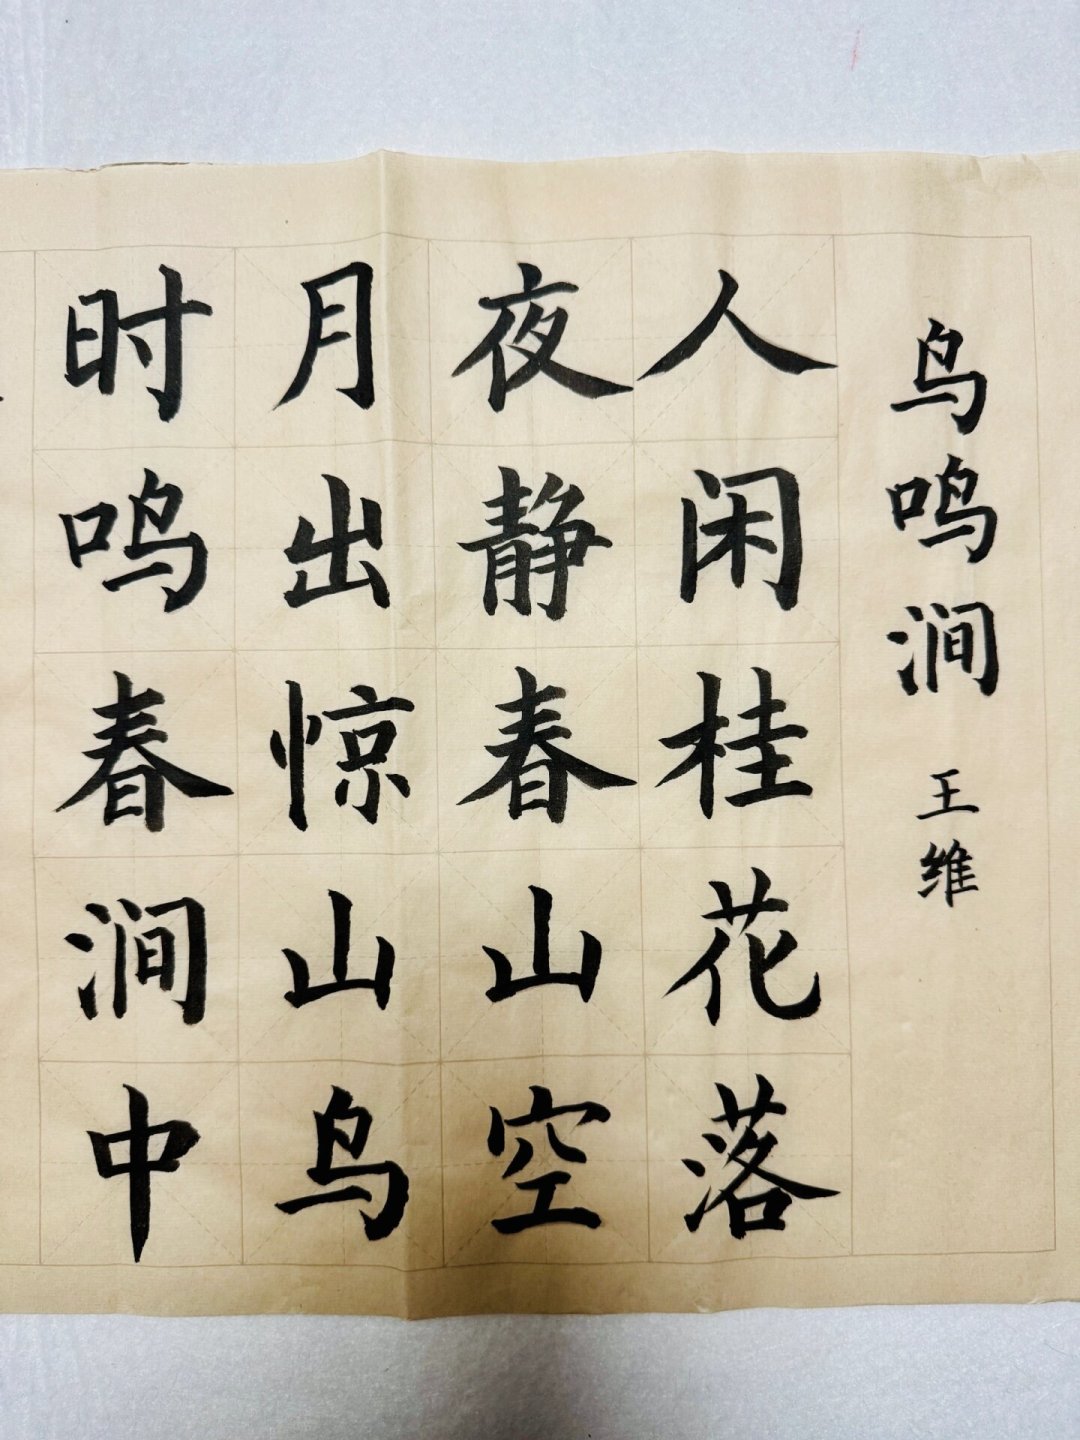 鸟鸣涧 王维
人闲桂花落
夜静春山空
月出惊山鸟
时鸣春涧中